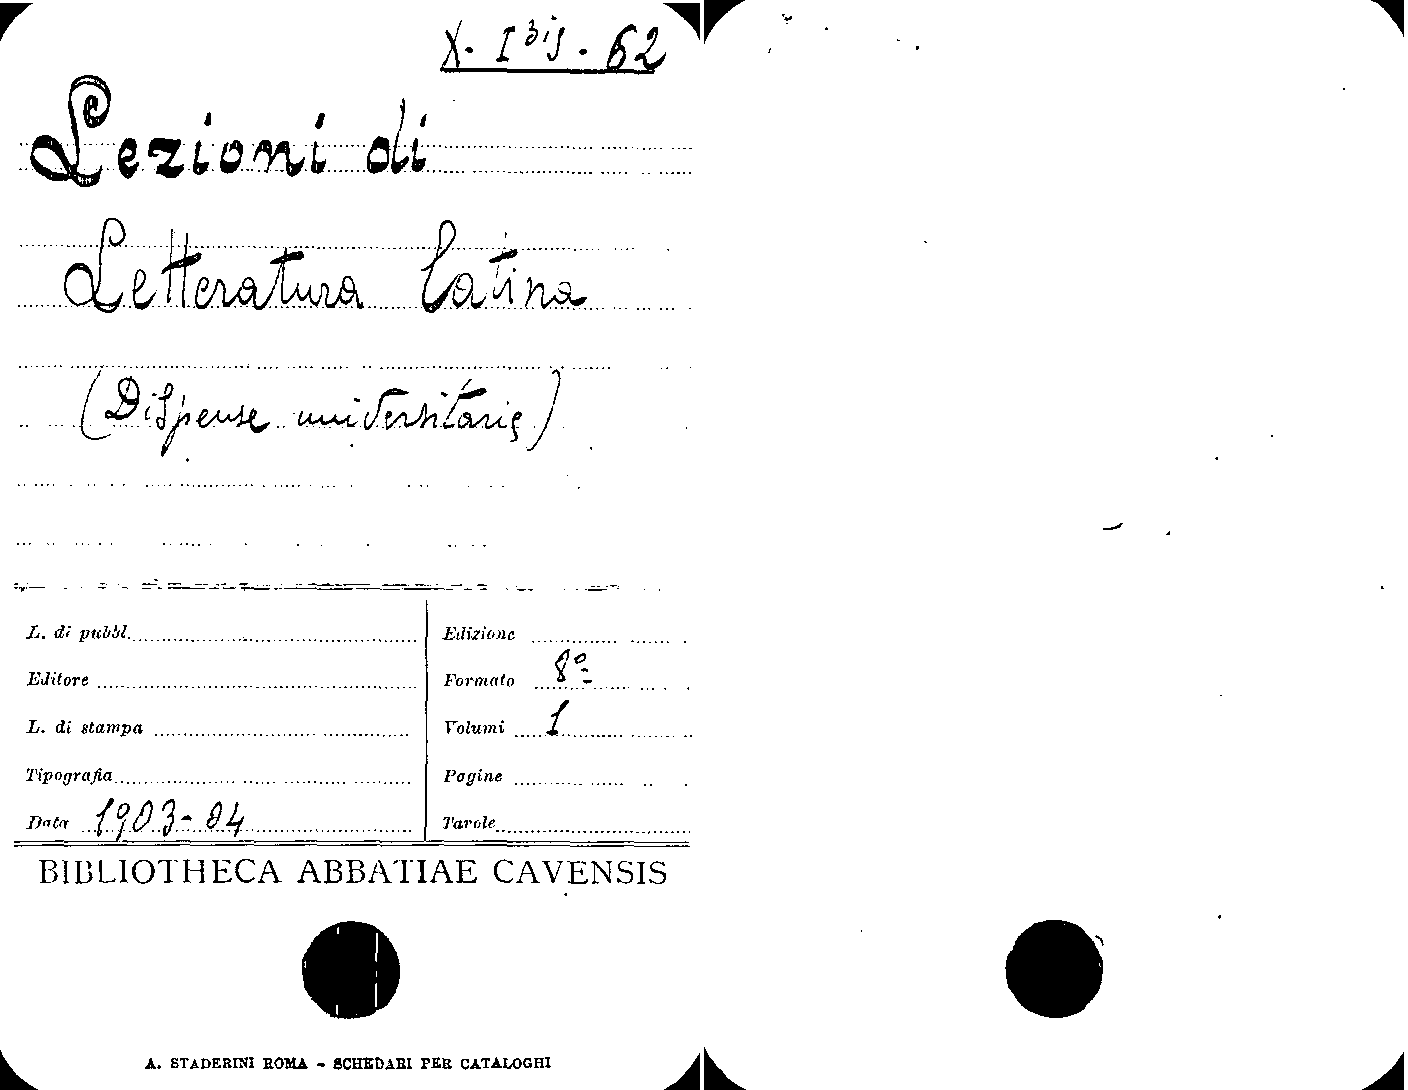 X. I bis. 62
Lezioni di
Letteratura latina
(Dispense universitarie)
L. di pubbl.
Editore
L. di stampa
Tipografia
Data 1903-04
Edizione
Formato 8º
Volumi 1
Pagine
Tavole
BIBLIOTHECA ABBATIAE CAVENSIS
A. STADERINI ROMA - SCHEDARI PER CATALOGHI